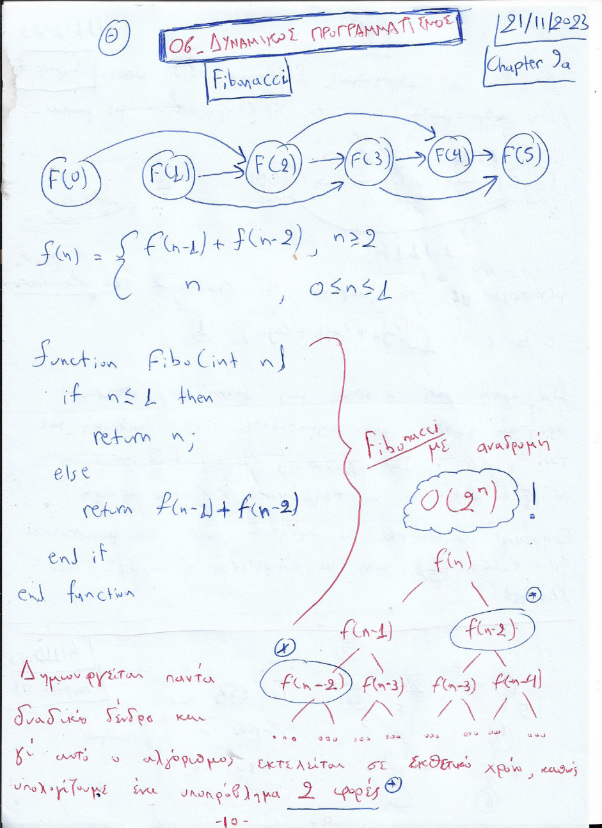 Θ
06_ ΔΥΝΑΜΙΚΟΣ ΠΡΟΓΡΑΜΜΑΤΙΣΜΟΣ
21/11/2023
Fibonacci
Chapter 9a
F(0) F(1) F(2) F(3) F(4) F(5)
f(n) = { f(n-1) + f(n-2), n≥2
n , 0≤n≤1
function Fibo(int n)
if n≤1 then
return n;
else
return f(n-1) + f(n-2)
end if
end function
Fibonacci
με αναδρομή
O(2ⁿ) !
f(n)
f(n-1) f(n-2) *
* f(n-2) f(n-3) f(n-3) f(n-4)
... ... ... ... ... ...
Δημιουργείται παντα
δυαδικό δένδρο και
γι' αυτό ο αλγόριθμος εκτελείται σε εκθετικό χρόνο, καθώς
υπολογίζουμε ένα υποπρόβλημα 2 φορές *
-10-